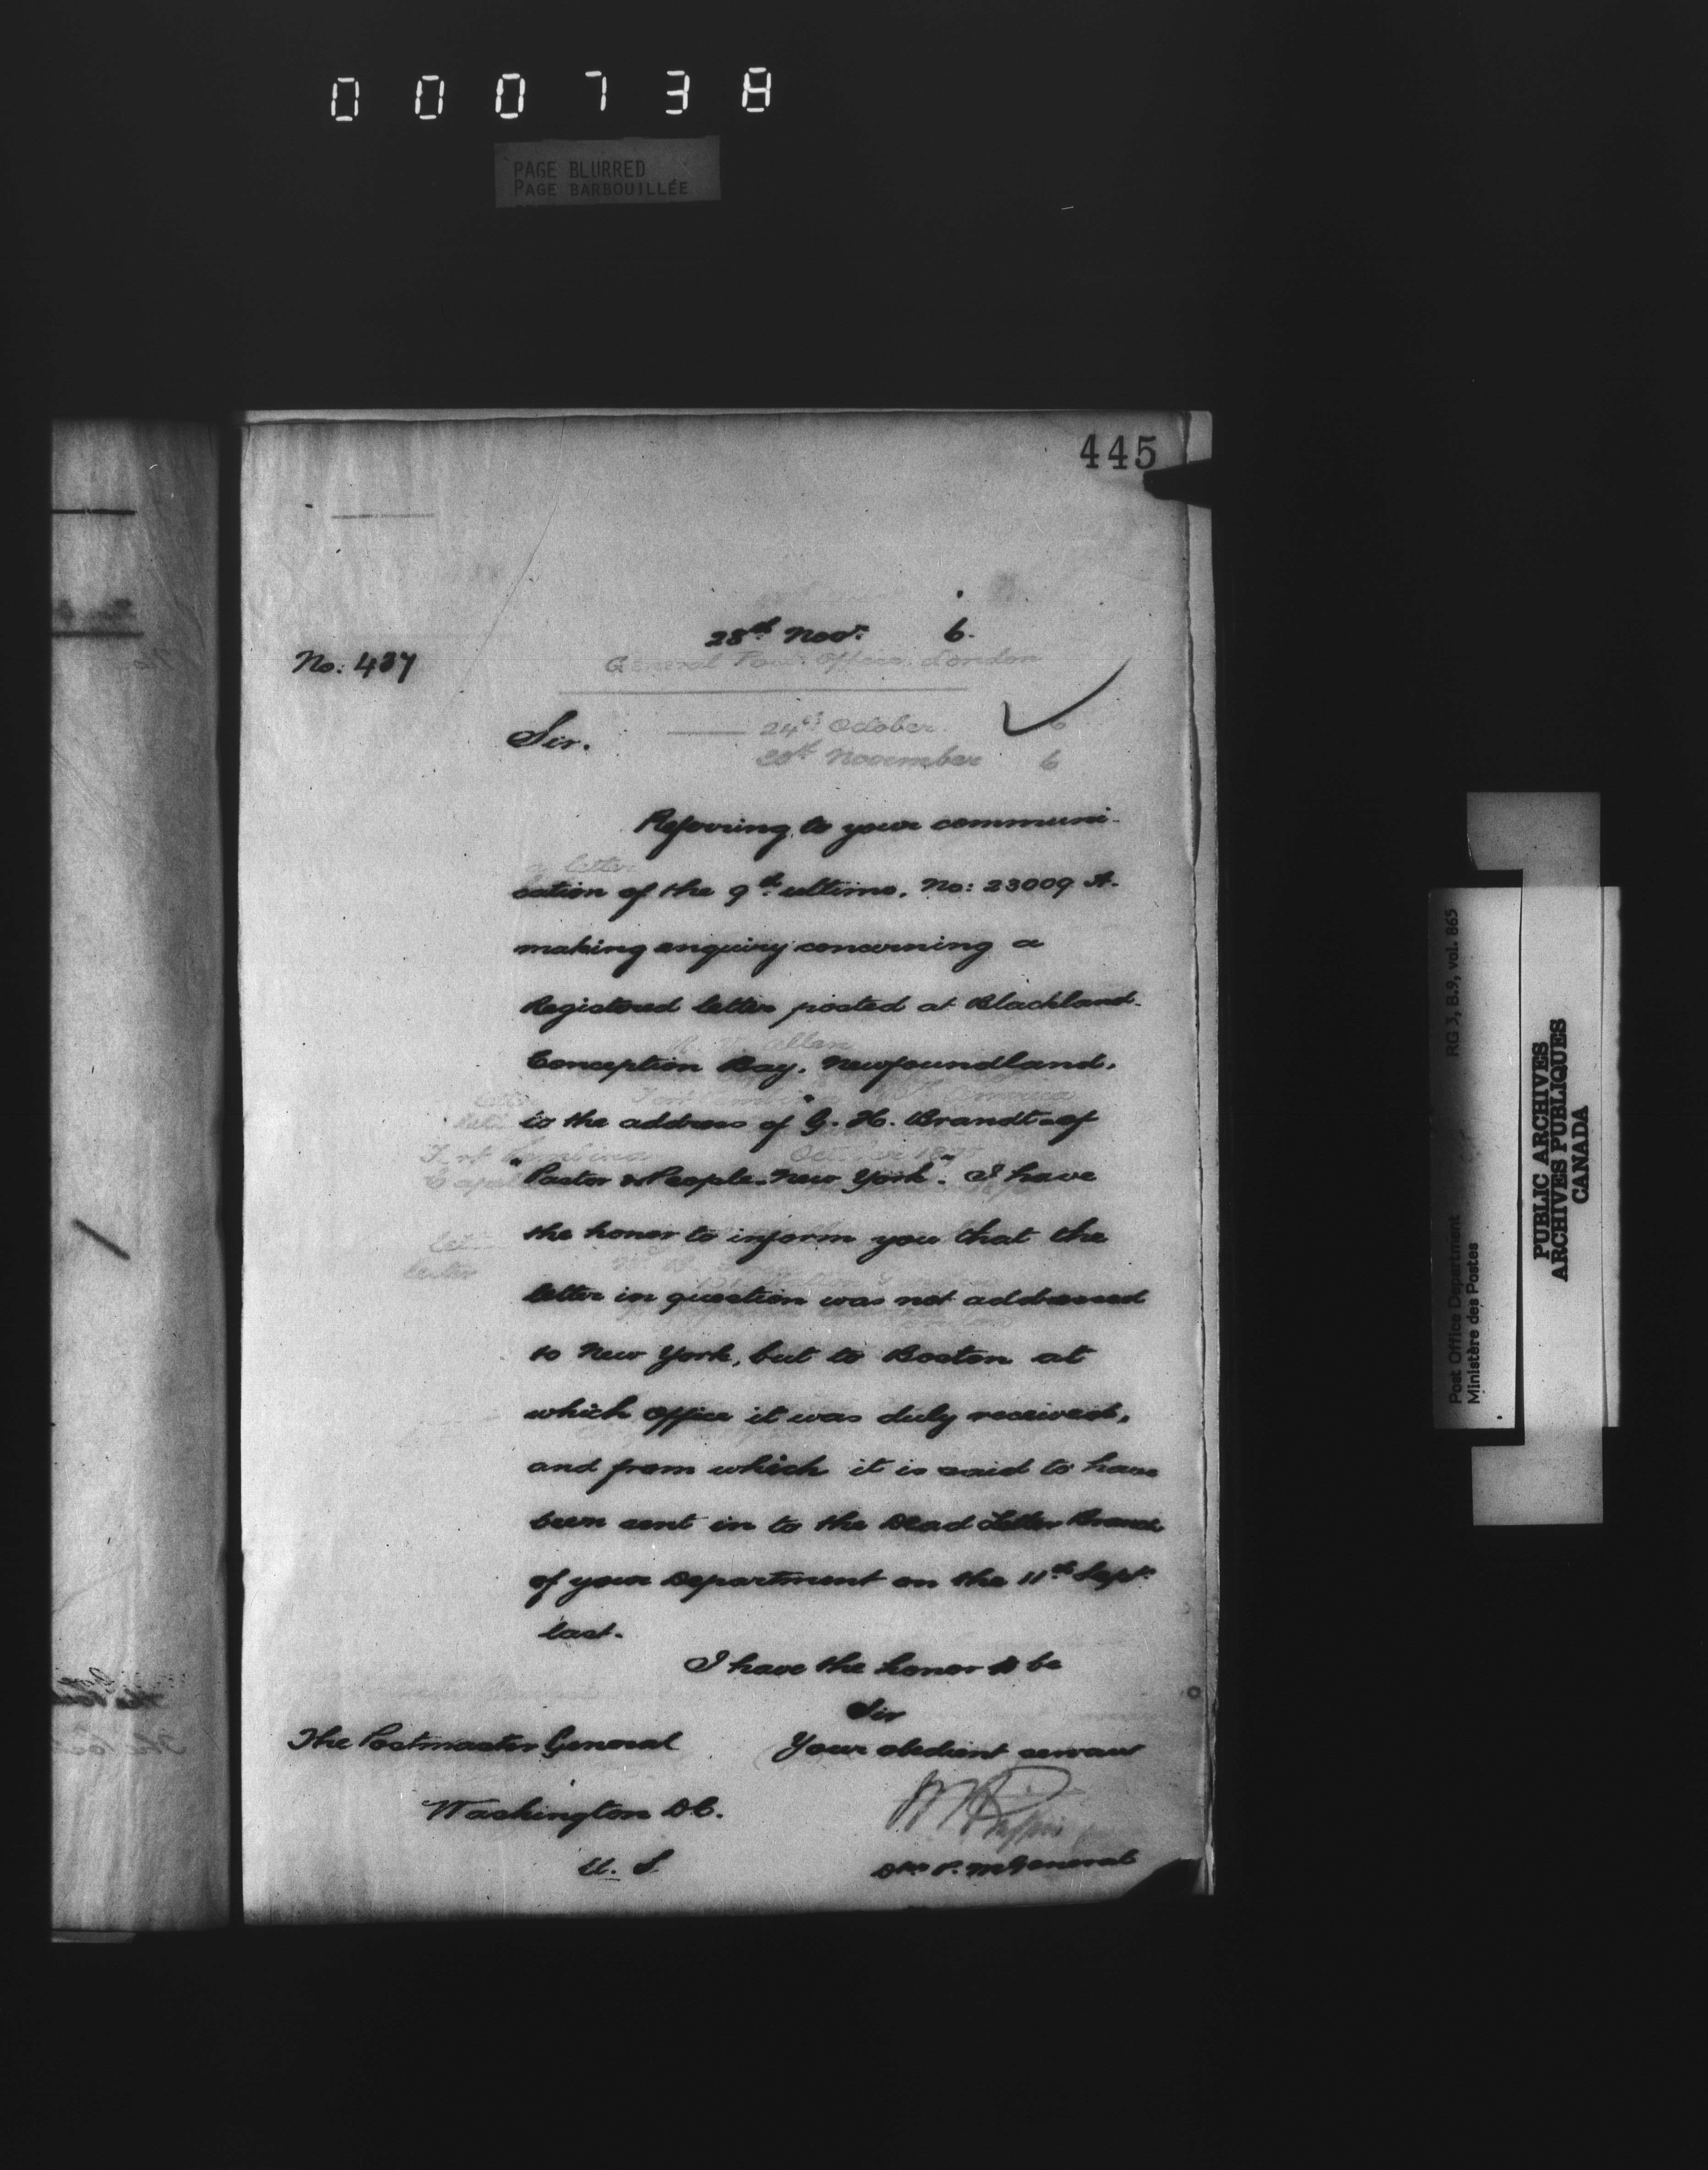 000738
PAGE BLURRED
PAGE BARBOUILLÉE
445
28th Novr. 6.
General Post Office London
No: 437
24th October 6
20th November 6
Sir.
Referring to your communi-
letter
cation of the 9th ultimo. No: 23009 A.
making enquiry concerning a
Registered letter posted at Blackland
Allan
Conception Bay. Newfoundland,
to the address of "G. H. Brandt of
October 1875
"Pastor & People. New York". I have
the honor to inform you that the
letter
letter in question was not addressed
to New York, but to Boston at
which Office it was duly received,
and from which it is said to have
been sent in to the Dead Letter Branch
of your Department on the 11th Sept.
last.
I have the honor to be
Sir
The Postmaster General
Your obedient servant
Washington D.C.
U. S.
D. P. M General
RG 3, B.9, vol. 865
Post Office Department
Ministère des Postes
PUBLIC ARCHIVES
ARCHIVES PUBLIQUES
CANADA